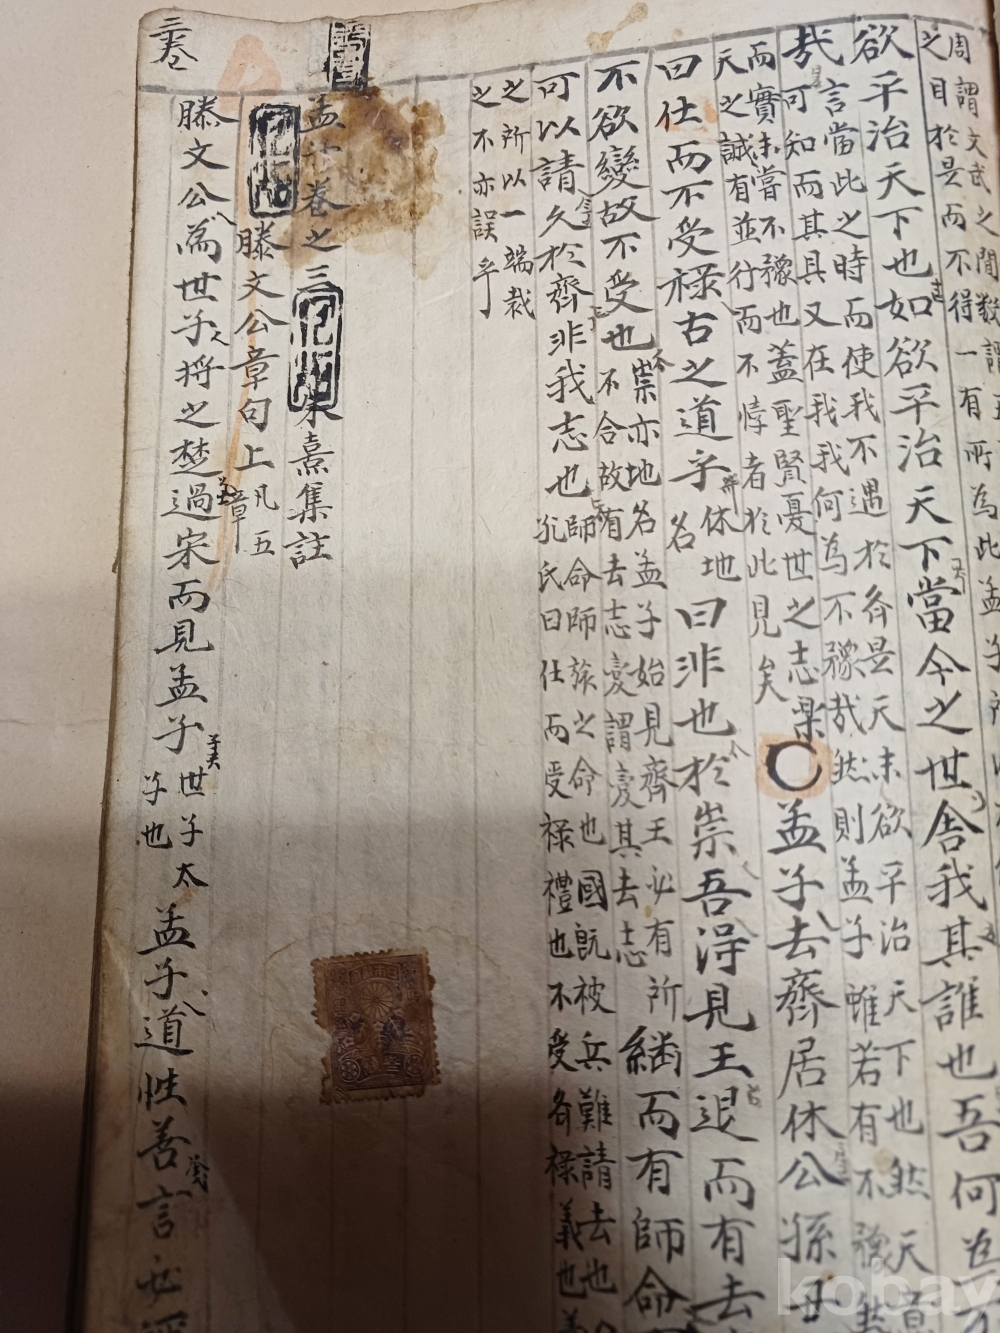 周謂文武之間數謂五
之目於是而不得一有所為此孟子所以
欲平治天下也如欲平治天下當今之世舍我其誰也吾何為不
言當此之時而使我不遇於齊是天未欲平治天下也然天意
哉可知而其具又在我我何為不豫哉然則孟子雖若有不豫然
而實未嘗不豫也蓋聖賢憂世之志樂
天之誠有並行而不悖者於此見矣
孟子去齊居休公孫丑
曰仕而不受祿古之道乎
休地名
曰非也於崇吾得見王退而有去
不欲變故不受也
崇亦地名孟子始見齊王必有所
不合故有去志變謂變其去志
繼而有師命
可以請久於齊非我志也
師命師旅之命也國既被兵難請去也
孔氏曰仕而受祿禮也不受齊祿義也義
之所以一端裁
之不亦誤乎
孟子卷之三
朱熹集註
滕文公章句上
凡五章
三卷
滕文公為世子將之楚過宋而見孟子
世子太子也
孟子道性善言必稱
kobay